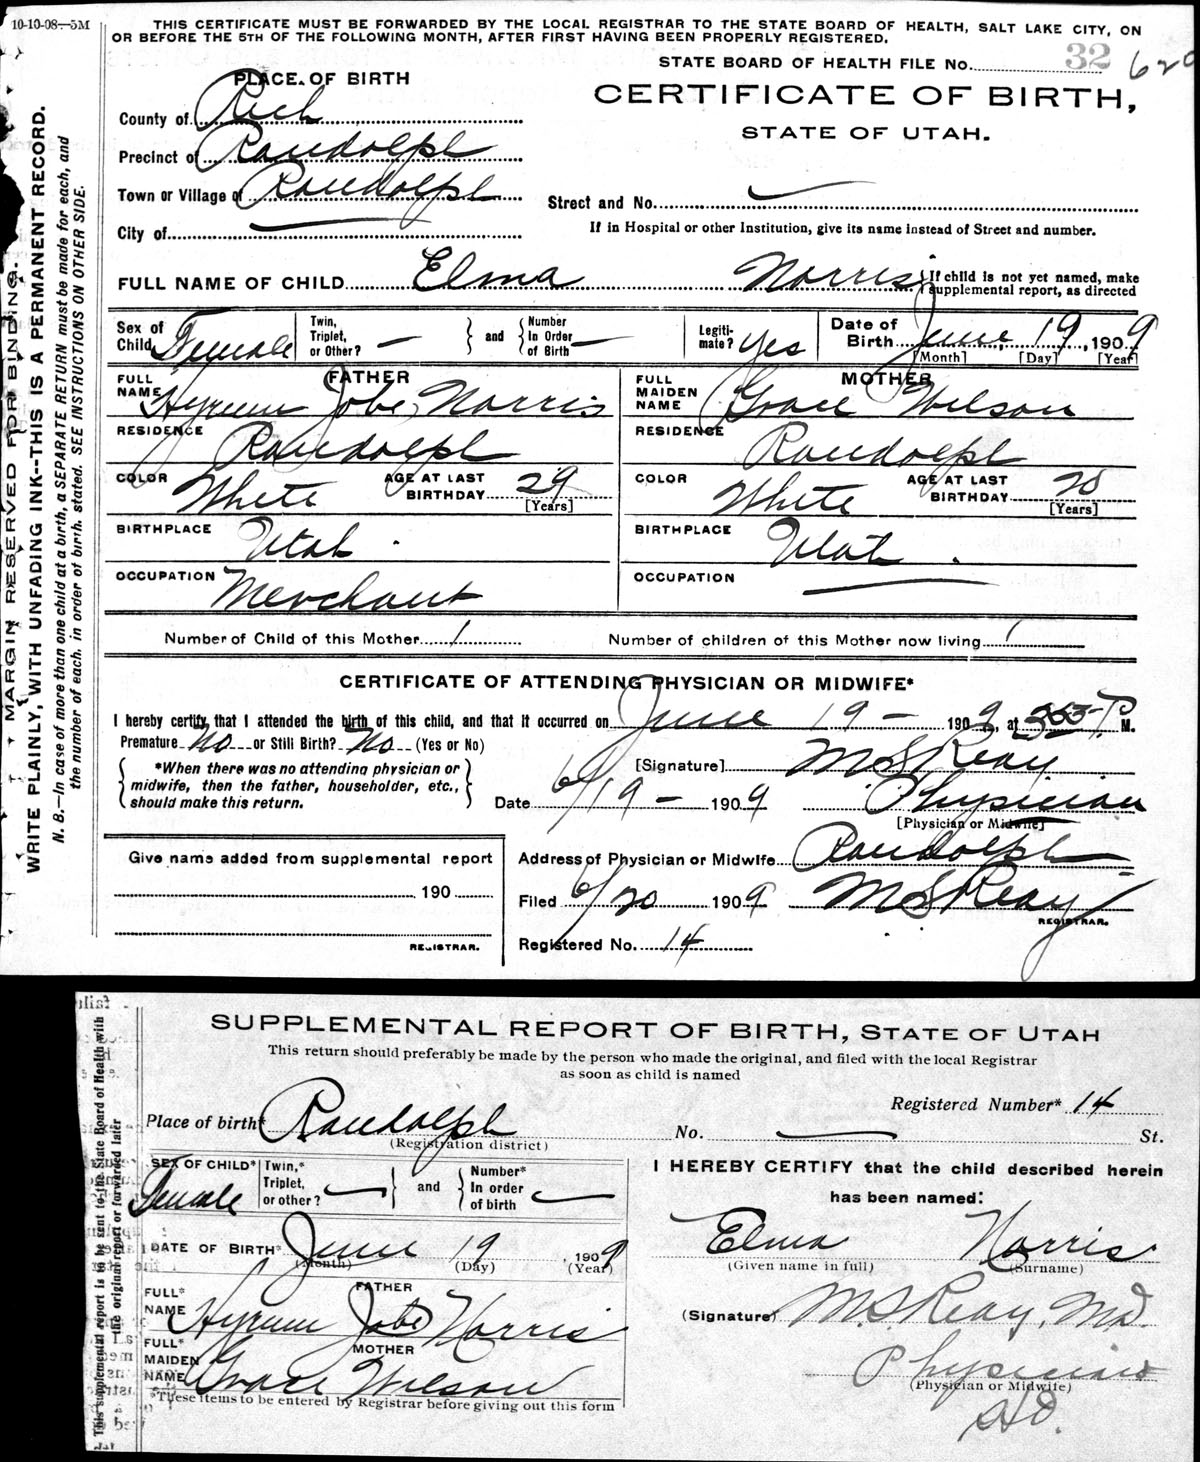 10-10-08—5M
THIS CERTIFICATE MUST BE FORWARDED BY THE LOCAL REGISTRAR TO THE STATE BOARD OF HEALTH, SALT LAKE CITY, ON
OR BEFORE THE 5TH OF THE FOLLOWING MONTH, AFTER FIRST HAVING BEEN PROPERLY REGISTERED.
STATE BOARD OF HEALTH FILE No. 32 620
MARGIN RESERVED FOR BINDING.
WRITE PLAINLY, WITH UNFADING INK--THIS IS A PERMANENT RECORD.
N. B.—In case of more than one child at a birth, a SEPARATE RETURN must be made for each, and
the number of each, in order of birth, stated. SEE INSTRUCTIONS ON OTHER SIDE.
PLACE OF BIRTH
CERTIFICATE OF BIRTH,
STATE OF UTAH.
County of Rich
Precinct of Randolph
Town or Village of Randolph
Street and No.
City of
If in Hospital or other Institution, give its name instead of Street and number.
FULL NAME OF CHILD Elma Norris
If child is not yet named, make
supplemental report, as directed
Sex of Child Female
Twin, Triplet, or Other? — and Number In Order of Birth —
Legiti- mate? Yes
Date of Birth June 19, 1909
[Month] [Day] [Year]
FATHER
FULL NAME Hyrum Jobe Norris
RESIDENCE Randolph
COLOR White AGE AT LAST BIRTHDAY 29
[Years]
BIRTHPLACE Utah.
OCCUPATION Merchant
MOTHER
FULL MAIDEN NAME Grace Wilson
RESIDENCE Randolph
COLOR White AGE AT LAST BIRTHDAY
[Years]
BIRTHPLACE Utah.
OCCUPATION
Number of Child of this Mother 1 Number of children of this Mother now living 1
CERTIFICATE OF ATTENDING PHYSICIAN OR MIDWIFE*
I hereby certify that I attended the birth of this child, and that it occurred on June 19 — 1909, at P. M.
Premature No or Still Birth? No (Yes or No)
*When there was no attending physician or
midwife, then the father, householder, etc.,
should make this return.
[Signature] M S Reay
Date 6/19 — 1909 Physician
[Physician or Midwife]
Give name added from supplemental report
190
REGISTRAR.
Address of Physician or Midwife Randolph
Filed 6/20 1909 M S Reay
REGISTRAR.
Registered No. 14
This supplemental report is to be sent to the State Board of Health with
the original report or forwarded later
SUPPLEMENTAL REPORT OF BIRTH, STATE OF UTAH
This return should preferably be made by the person who made the original, and filed with the local Registrar
as soon as child is named
Registered Number* 14
Place of birth* Randolph No. — St.
(Registration district)
SEX OF CHILD* Female
Twin,* Triplet, or other? and Number* In order of birth
DATE OF BIRTH* June 19, 1909
(Month) (Day) (Year)
FATHER
FULL* NAME Hyrum Jobe Norris
MOTHER
FULL* MAIDEN NAME Grace Wilson
*These items to be entered by Registrar before giving out this form
I HEREBY CERTIFY that the child described herein
has been named:
Elma Norris
(Given name in full) (Surname)
(Signature) M.S. Reay, Md.
Physician
(Physician or Midwife)